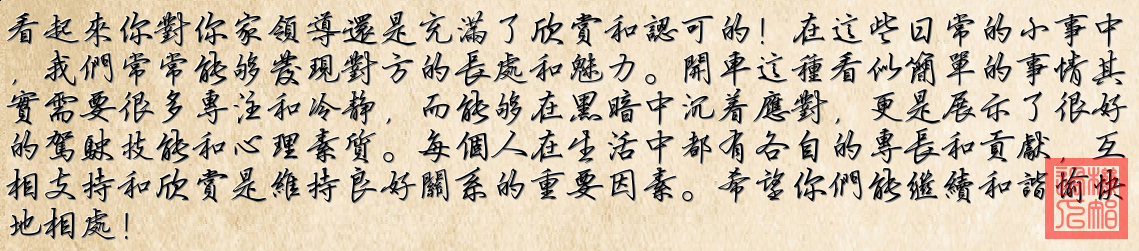 看起來你對你家領導還是充滿了欣賞和認可的！在這些日常的小事中
，我們常常能够發現對方的長處和魅力。開車這種看似簡單的事情其
實需要很多專注和冷靜，而能够在黑暗中沉着應對，更是展示了很好
的駕駛技能和心理素質。每個人在生活中都有各自的專長和貢獻，互
相支持和欣賞是維持良好關系的重要因素。希望你們能繼續和諧愉快
地相處！